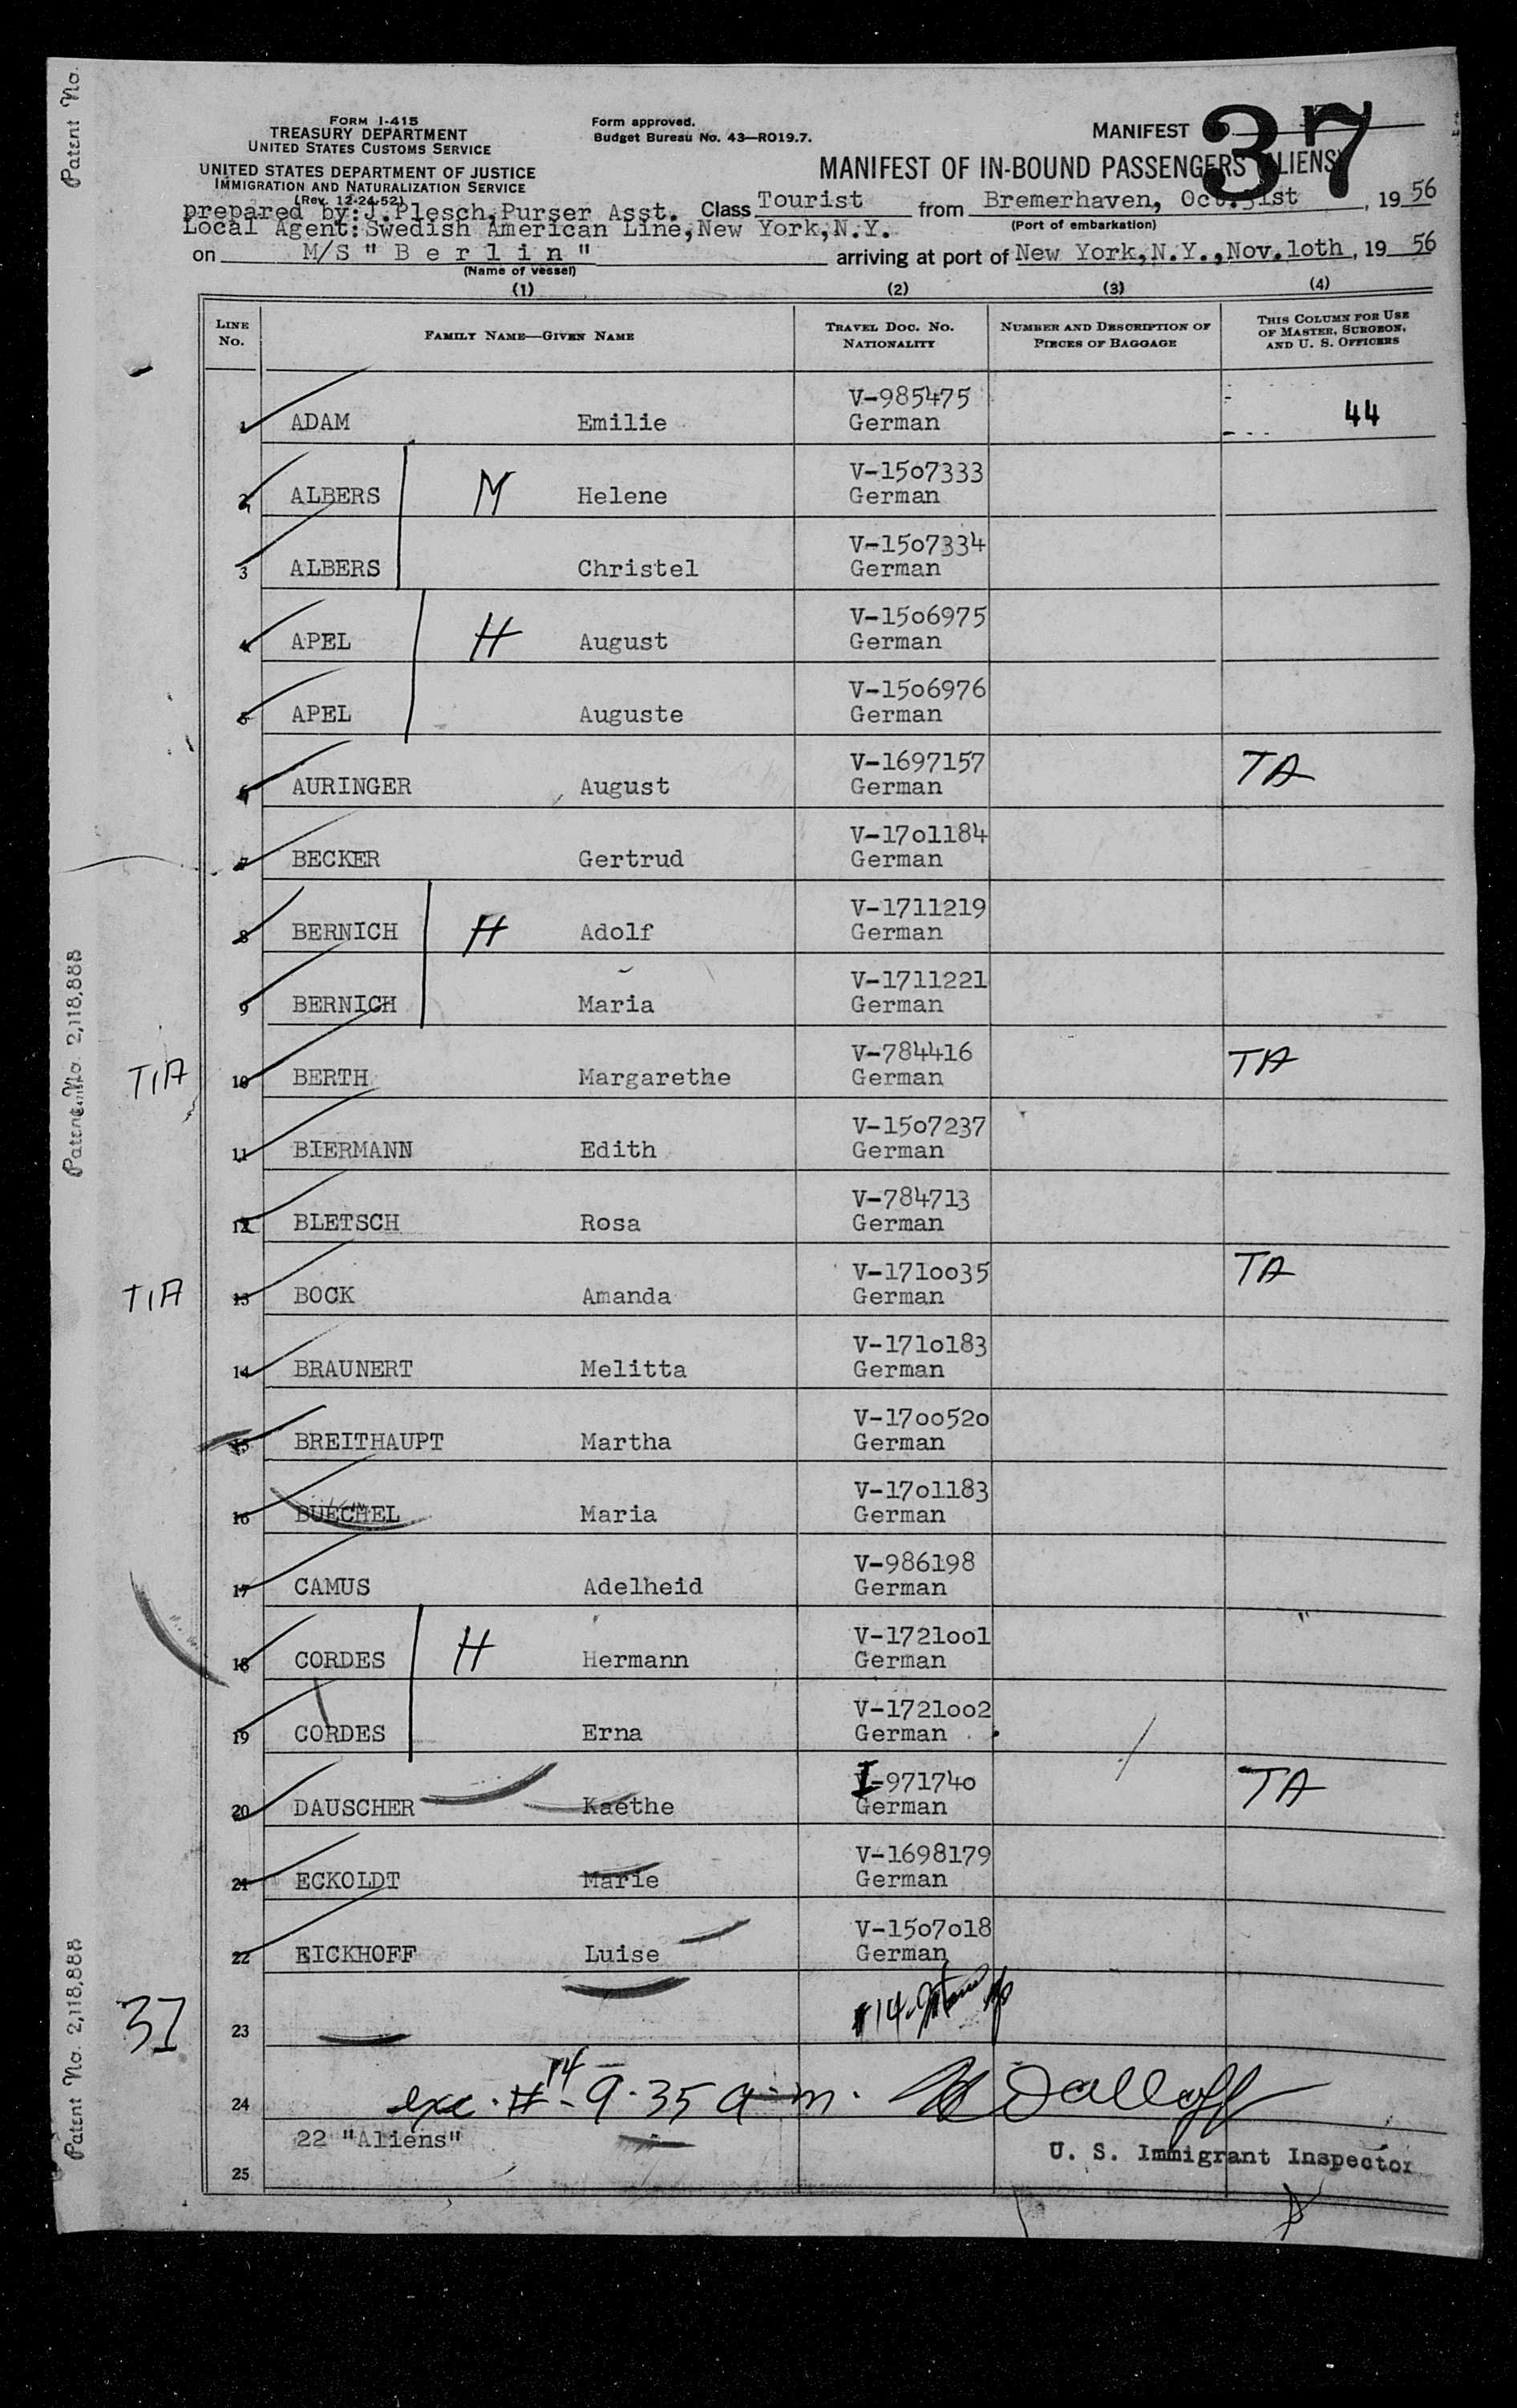 Patent No.
FORM I-415
TREASURY DEPARTMENT
UNITED STATES CUSTOMS SERVICE
UNITED STATES DEPARTMENT OF JUSTICE
IMMIGRATION AND NATURALIZATION SERVICE
(Rev. 12-24-52)
Form approved.
Budget Bureau No. 43—RO19.7.
MANIFEST 37
MANIFEST OF IN-BOUND PASSENGERS (ALIENS)
prepared by:J.Plesch,Purser Asst. Class Tourist from Bremerhaven, Oct.31st, 1956
(Port of embarkation)
Local Agent:Swedish American Line,New York,N.Y.
on M/S " B e r l i n " arriving at port of New York,N.Y.,Nov.loth, 1956
(Name of vessel)
(1) (2) (3) (4)
LINE No. FAMILY NAME—GIVEN NAME TRAVEL DOC. NO. NATIONALITY NUMBER AND DESCRIPTION OF PIECES OF BAGGAGE THIS COLUMN FOR USE OF MASTER, SURGEON, AND U. S. OFFICERS
V-985475
1 ADAM Emilie German 44
V-15o7333
2 ALBERS M Helene German
V-15o7334
3 ALBERS Christel German
V-15o6975
4 APEL H August German
V-15o6976
5 APEL Auguste German
V-1697157 TA
6 AURINGER August German
V-17o1184
7 BECKER Gertrud German
V-1711219
8 BERNICH H Adolf German
V-1711221
9 BERNICH Maria German
V-784416 TA
T1A 10 BERTH Margarethe German
V-15o7237
11 BIERMANN Edith German
V-784713
12 BLETSCH Rosa German
V-171oo35 TA
T1A 13 BOCK Amanda German
V-171o183
14 BRAUNERT Melitta German
V-17oo52o
15 BREITHAUPT Martha German
V-17o1183
16 BUECHEL Maria German
V-986198
17 CAMUS Adelheid German
V-1721oo1
18 CORDES H Hermann German
V-1721oo2
19 CORDES Erna German
I-97174o TA
20 DAUSCHER Kaethe German
V-1698179
21 ECKOLDT Marie German
V-15o7o18
22 EICKHOFF Luise German
37 23 #14-
24 exc. # 14 - 9.35 a.m.
22 "Aliens"
U. S. Immigrant Inspector
25
Patent No. 2,118,888
Patent No. 2,118,888